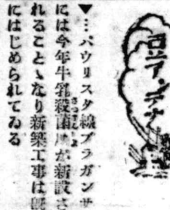 ▼…パウリスタ線ブラガンサ
には今年牛乳殺菌所が新設さ
れることゝなり新築工事は既
にはじめられてゐる